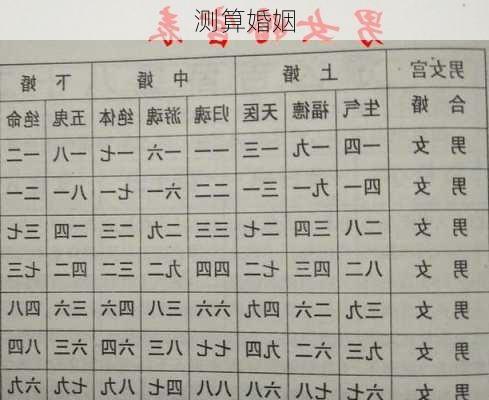 测算婚姻
男女宫 上婚 中婚 下婚
合婚 生气 福德 天医 归魂 游魂 绝体 五鬼 绝命
男女 一四 一九 一三 一一 一六 一七 一八 一二
男女 四一 九一 三一 二二 六一 七一 八一 二一
男女 二八 三四 二七 三三 二九 二三 二四 三七
男女 八二 四三 七二 四四 九二 三二 四二 七三
男女 三九 二六 四九 六六 三八 四六 三六 四八
男女 九三 六二 九四 七七 八三 六四 六三 八四
男女 六七 七八 六八 八八 四七 八九 七九 六九